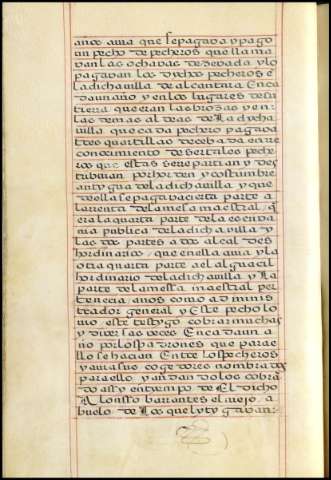 años avia que sepagava ypago
unpecho depecheros quellama
van las ochavas desevada ylo
pagavan los dichos pecheros e
ladichavilla de alcantara Enca
daunaño yenlos lugares desu
tierra queran lasbrozas yen
las demas aldeas de La dicha
villa que cada pechero pagava
tres quartillas decebada enrre
conocimiento de sertales peche
ros que estas serepartian y dis
tribuian porhorden ycostumbre
antygua deladichavilla y que
deella sepagavacierta parte a
larrenta dela mesamaestral, y
era la quarta parte de la escriva
nia publica deladicha villa y
las dos partes a dos alcaldes
hordinarios, que enella avia y la
otra quarta parte aelalguacil
hordinario deladichavilla y La
parte delamessa maestral per
tenecia, años como ad minis
trador general y Este pecholo
vio este testygo cobrar muchas
y diversas veces Encadaun a
ño porlospadrones que parae
llo sehacian Entre lospecheros
yaviasus cogedores nombrados
paraello y andandolos cobra
do assy entyempo de El dicho
Alonsso barrantes elviejo, a
buelo de Los quelytygaban: